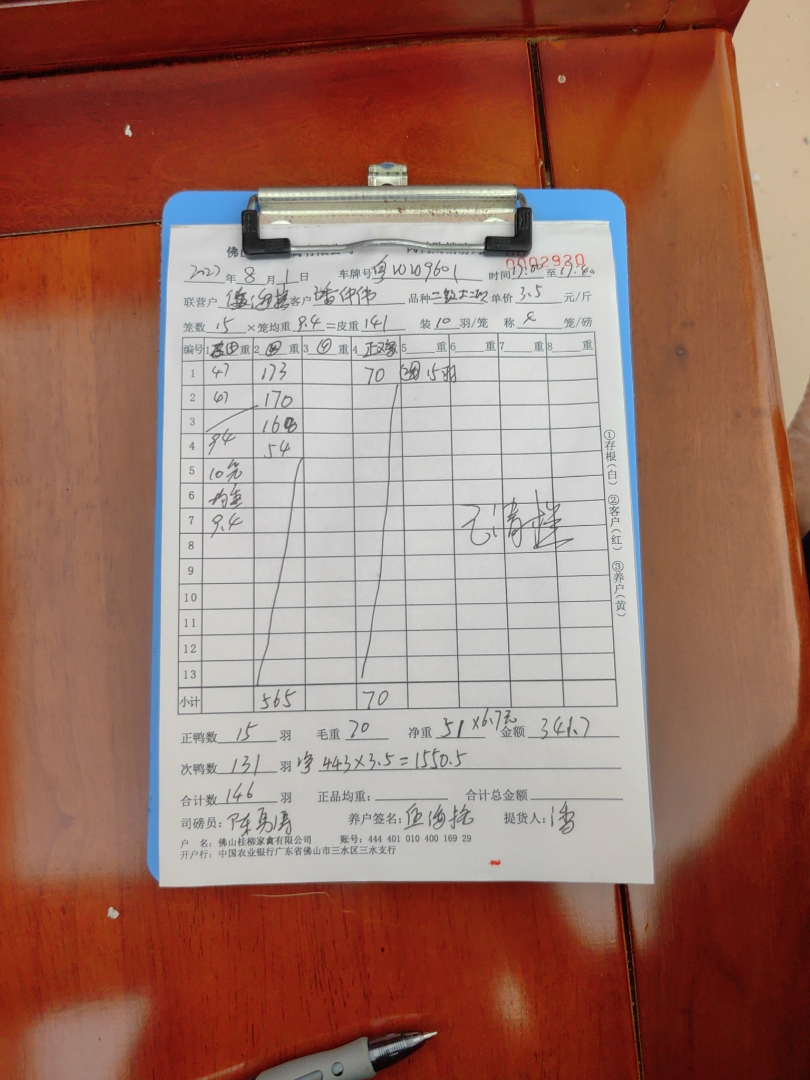 佛山
0002920
2023年8月1日 车牌号 粤WW9601 时间 17:00 至 17:40
联营户 客户 潘仲伟 品种 单价 3.5 元/斤
笼数 15 ×笼均重 9.4 =皮重 141 装 10 羽/笼 称 4 笼/磅
编号 1 重 2 重 3 重 4 正 5 重 6 重 7 重 8 重
1 47 173 70 15羽
2 47 170
3 168
4 94 54
5 10笼
6 均重
7 9.4
8
9
10
11
12
13
小计 565 70
正鸭数 15 羽 毛重 70 净重 51 ×6.7元 金额 341.7
次鸭数 131 羽 净 443×3.5=1550.5
合计数 146 羽 正品均重: 合计总金额
司磅员: 陈勇涛 养户签名: 提货人: 潘
户 名: 佛山桂柳家禽有限公司 账号: 444 401 010 400 169 29
开户行: 中国农业银行广东省佛山市三水区三水支行
①存根(白) ②客户(红) ③养户(黄)